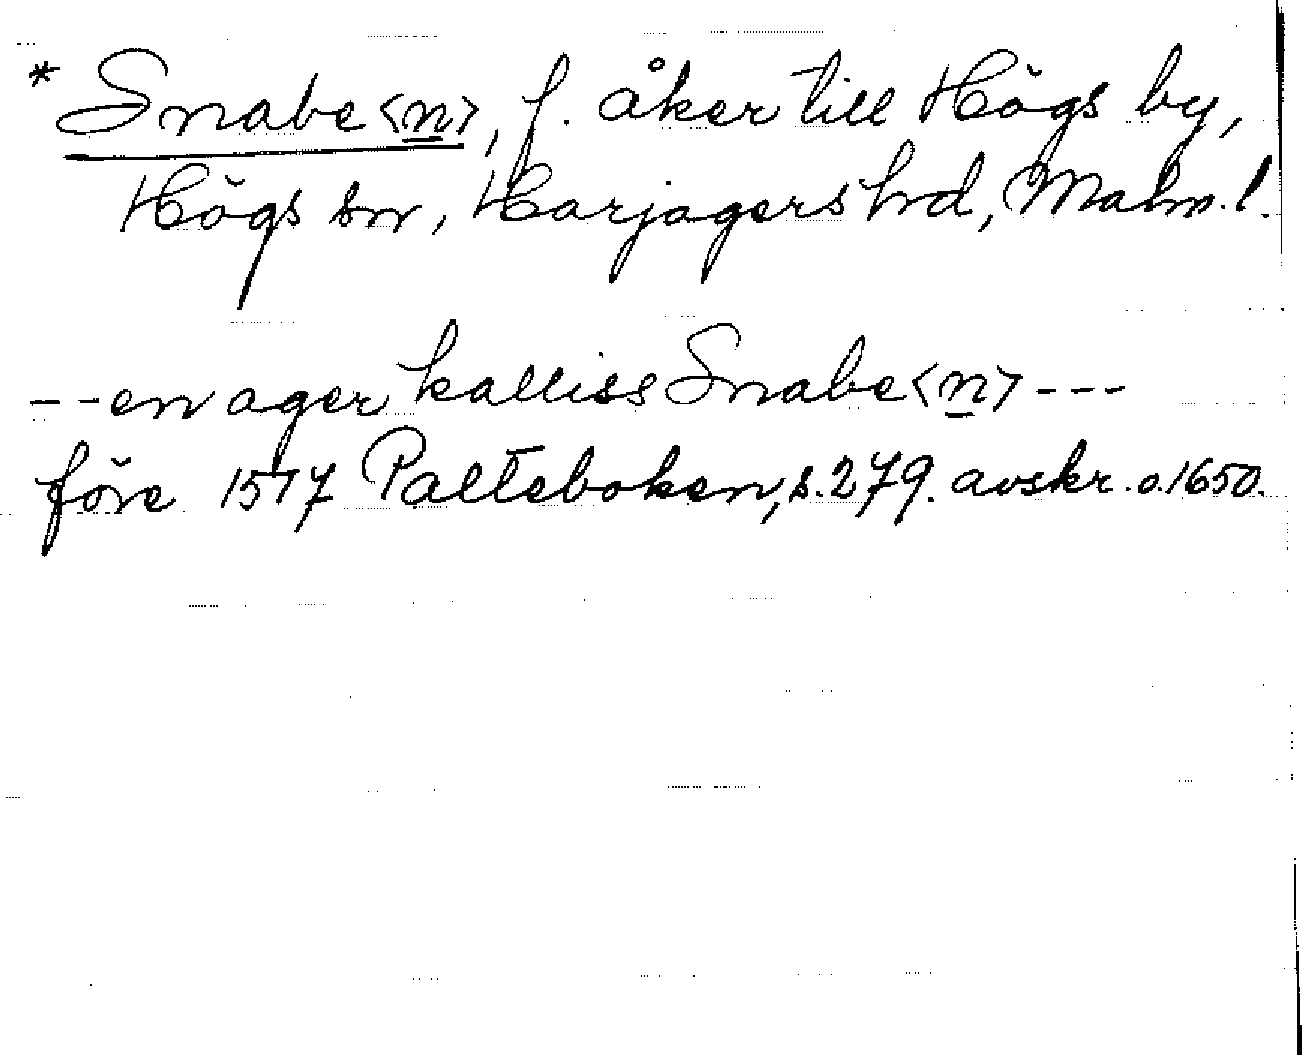 * Snabe<n>, f. åker till Högs by,
Högs sn, Harjagers hd, Malm. l.
-- en ager kalliss Snabe<n> ---
före 1517 Palteboken, s. 279. avskr. o. 1650.